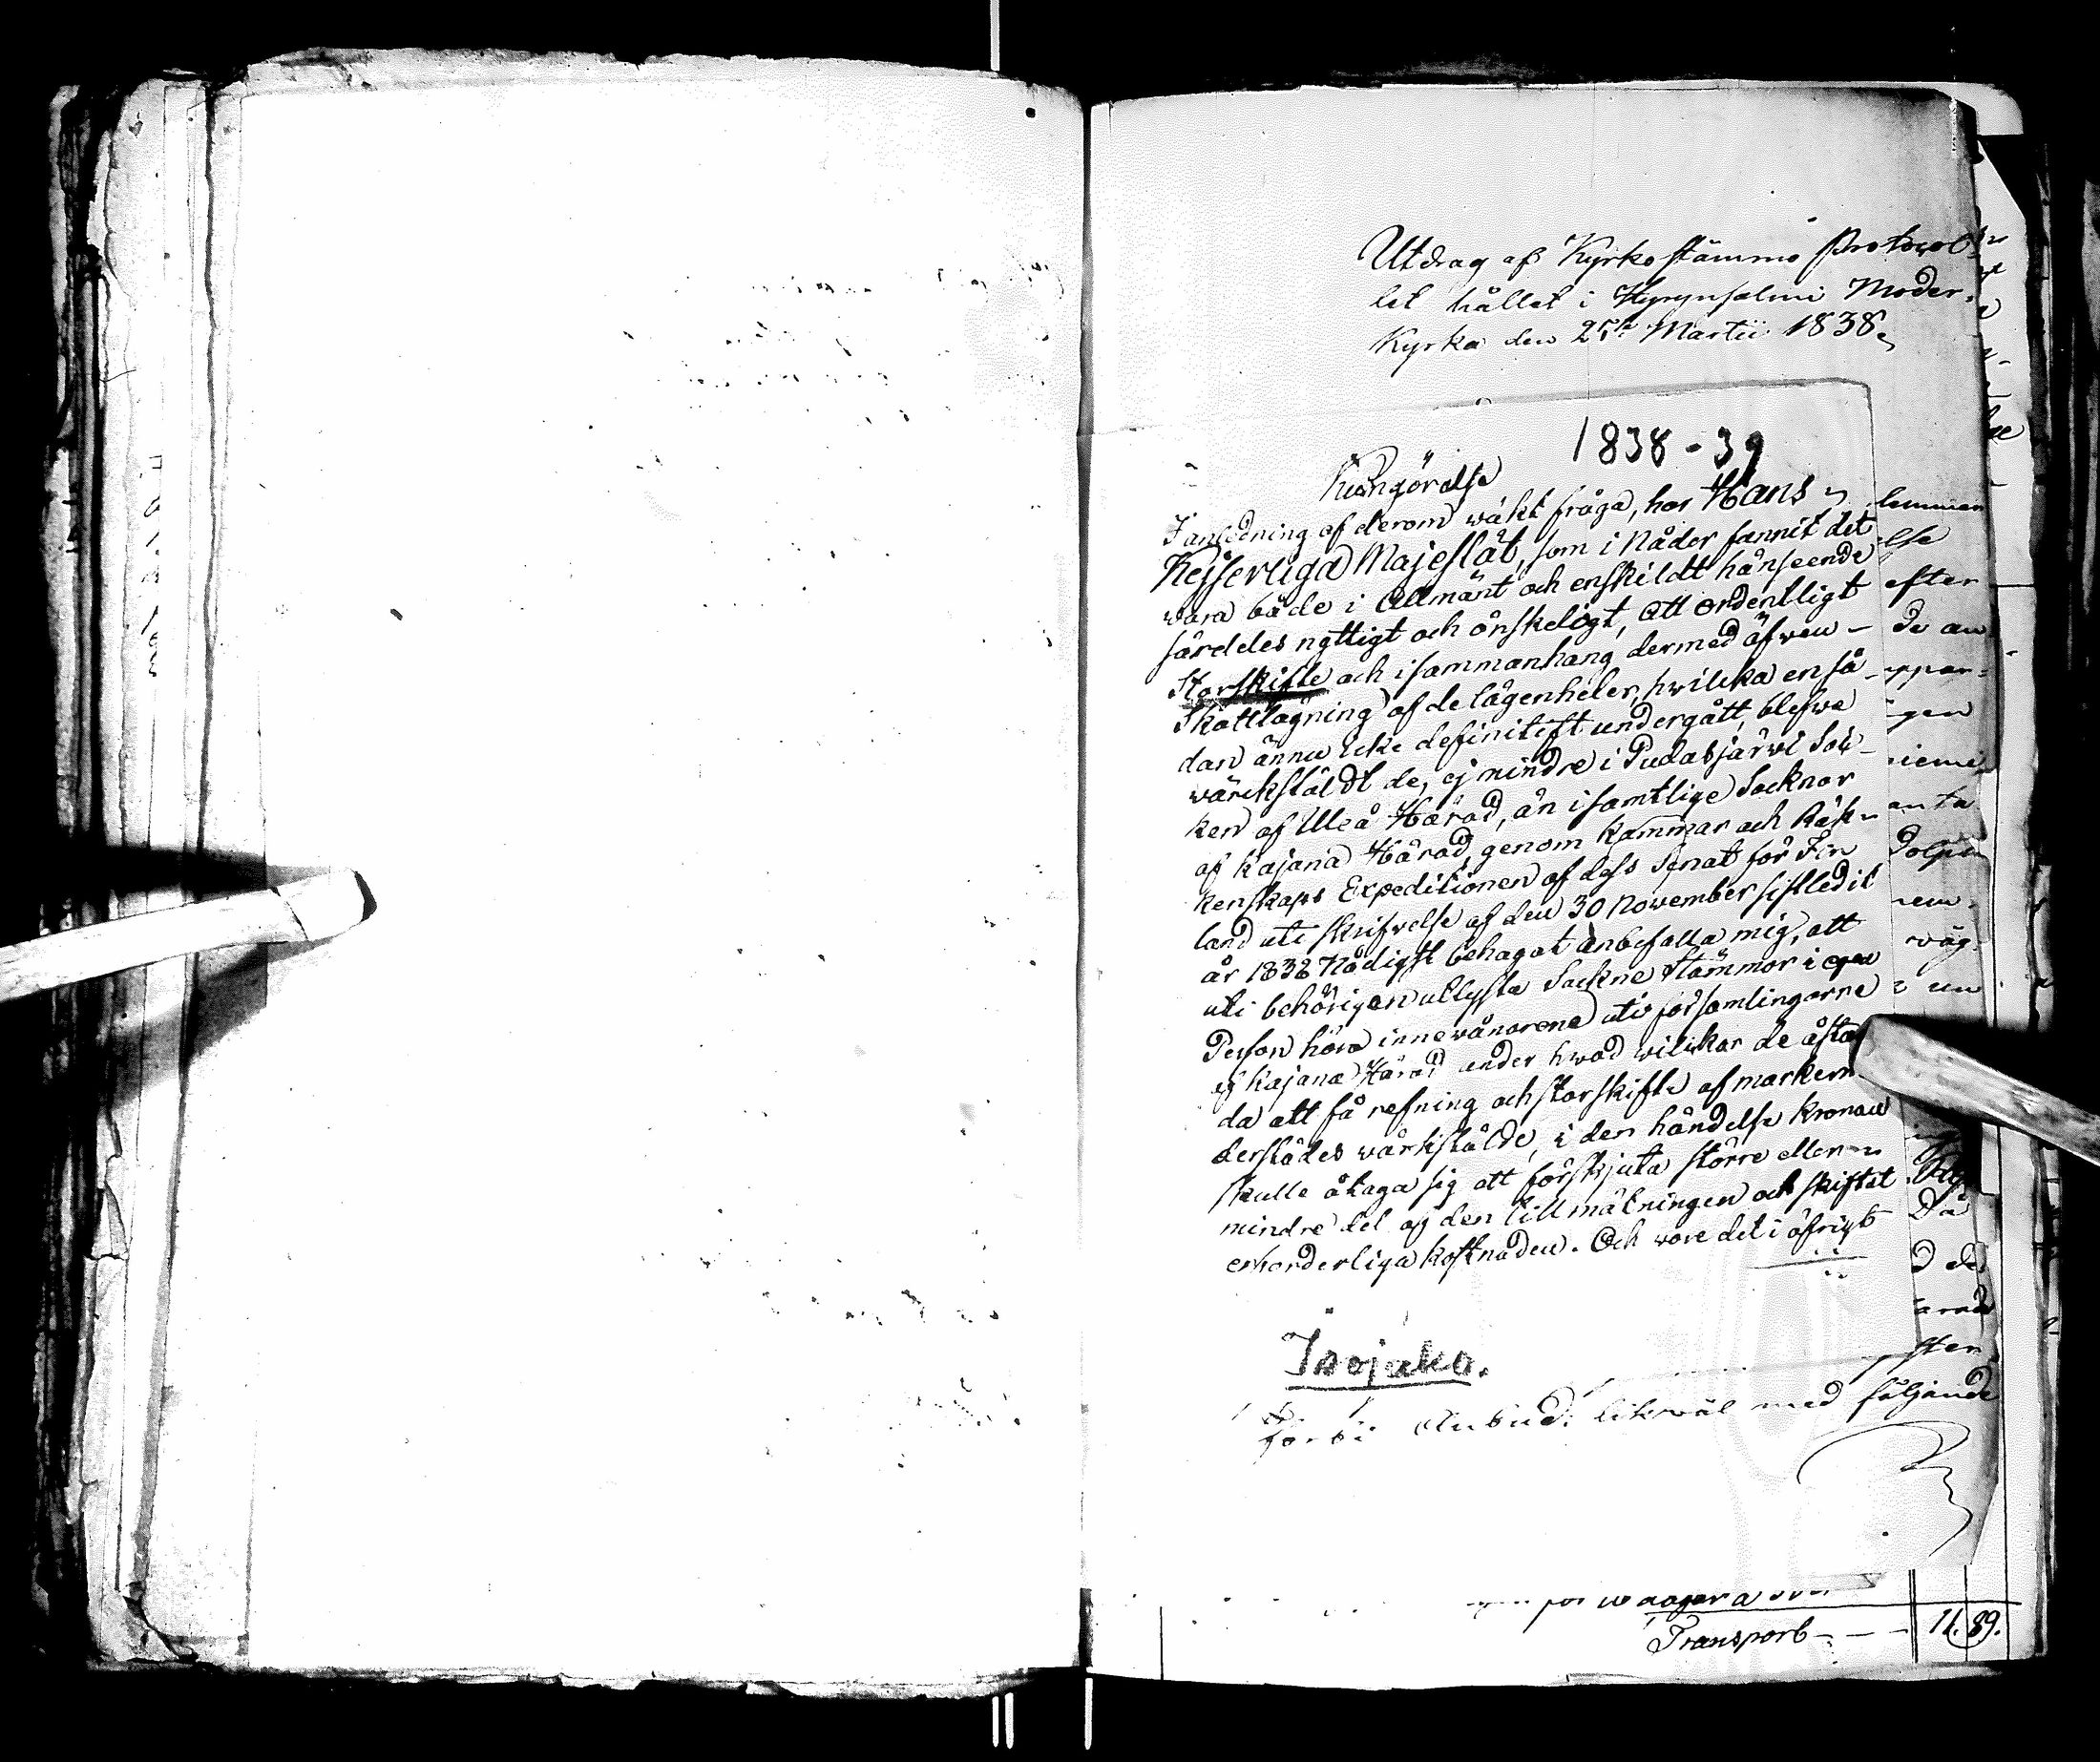 Utdrag af Kyrkostämmo Protocol-
let hållet i Hyrynsalmi Moder-
Kyrka den 25te Martii 1838
1838-39
Kungörelse
I anledning af derom wäkt fråga, har Hans
Kejserliga Majestät, som i Nåder funnit det
wara både i Allmänt och enskildt hänseende
särdeles nyttigt och önskeligt, att ordentligt
Storskifte och i sammanhang dermed äfwen
Skattläggning af de lägenheter, hwilcka en så-
dan ännu icke definitift undergått, blefwe
wärckstäldt de, ej mindre i Pudasjärwi Soc-
ken af Uleå Härad, än i samtlige Socknar
af Kajana Härad, genom Kammar och Räk-
kenskaps Expeditionen af dess Senat för Fin
land uti skrifvelse af den 30 November sistledit
år 1838 Nådigst behagat anbefalla mig, att
uti behörigen utlysta Sockne Stämmor i egen
Person höra innevånarene uti församlingarne
af Kajana Härad under hwad wilkor de åstun
da att få refning och storskifte af markerne
derstädes wärkstälde, i den händelse Kronan
skulle åtaga sig att förskjuta större eller
mindre del af den till mätningen och skiftet
erforderliga kostnaden. Och wore det i öfrigt
Isojako.
för si Anbud; likwäl med följande
Transport - - - 11. 89.
lemman
else
efter
de an
ppar-
gen
niemi
anta
rem
wäg-
un
Da
D de
arad
ster